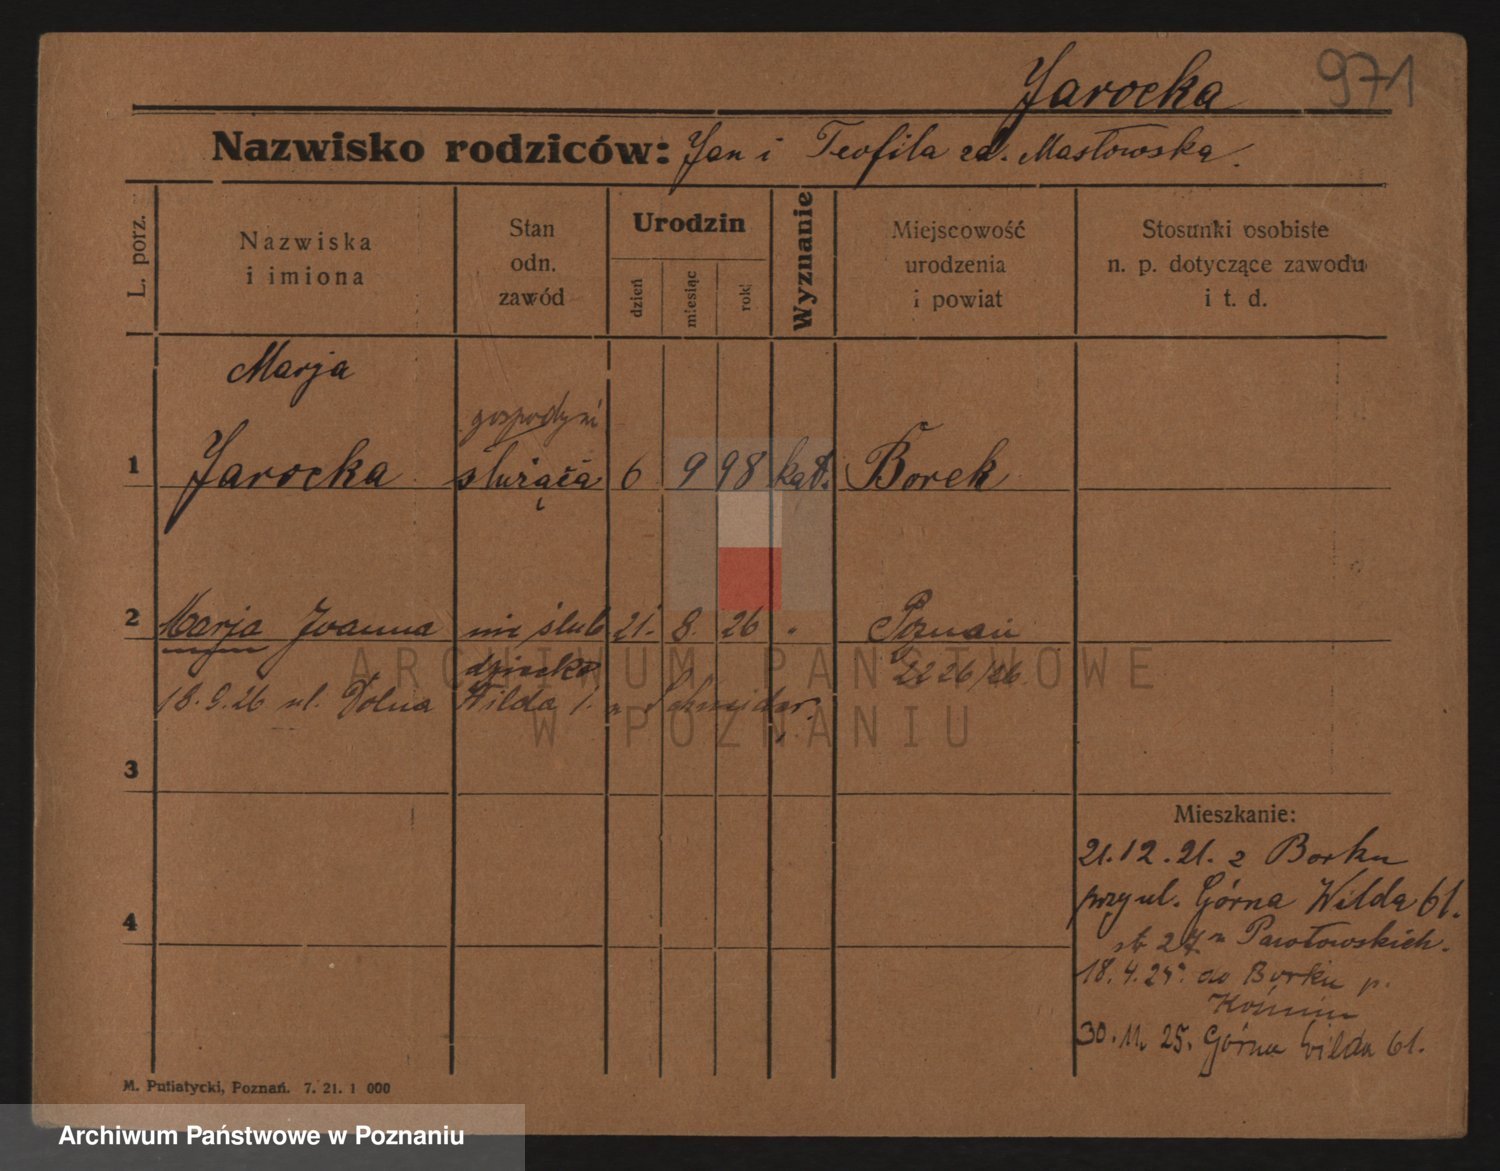 Jarocka 971
Nazwisko rodziców: Jan i Teofila zd. Masłowska.
L. porz.
Nazwiska
i imiona
Stan
odn.
zawód
Urodzin
dzień
miesiąc
rok
Wyznanie
Miejscowość
urodzenia
i powiat
Stosunki osobiste
n. p. dotyczące zawodu
i t. d.
Marja
gospodyni
1 Jarocka służąca 6 9 98 kat. Borek
2 Marja Joanna nie ślub 21. 8. 26 " Poznań
dziecko 2226/26
18.9.26 ul. Dolna Wilda 1.
ARCHIWUM PAŃSTWOWE
W POZNANIU
3
Mieszkanie:
21.12.21. z Borku
przy ul. Górna Wilda 61.
4
27
18.4.24. do Borku p.
Koźmin
30.11.25. Górna Wilda 61.
M. Putiatycki, Poznań. 7. 21. 1 000
Archiwum Państwowe w Poznaniu